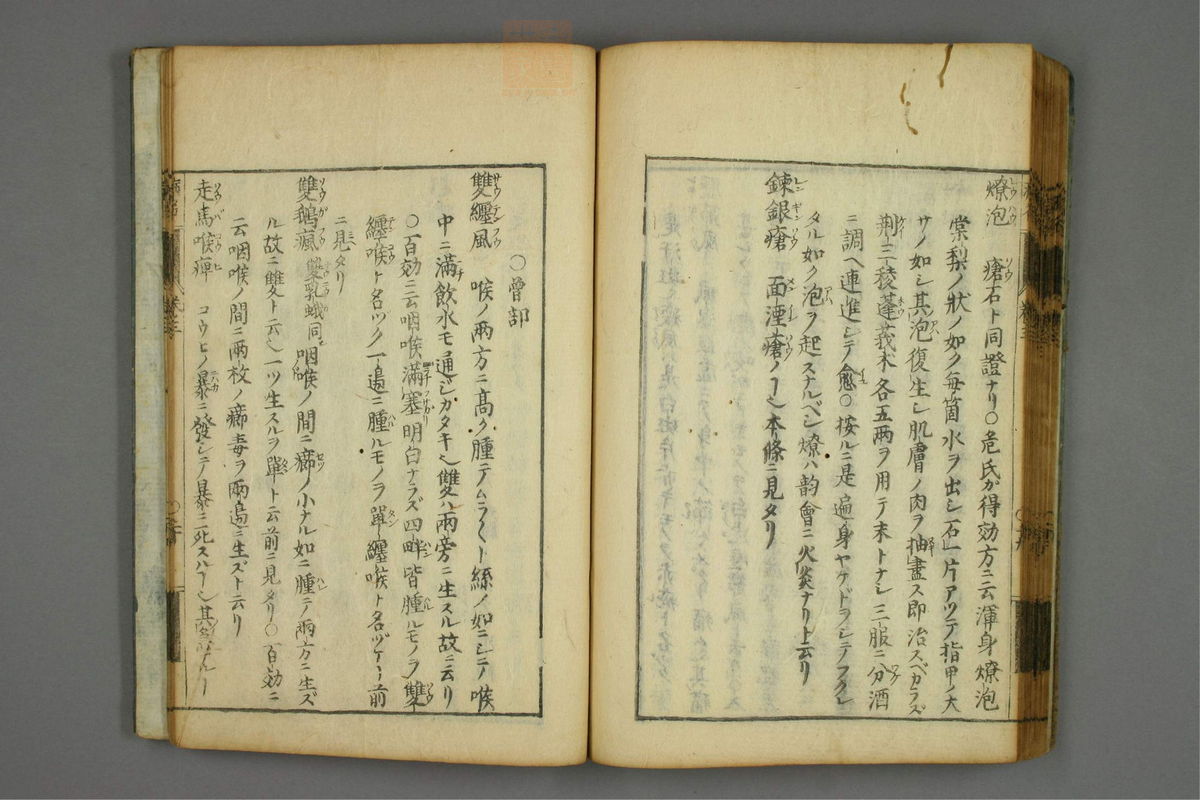 燎泡 瘡石ト同證ナリ〇危氏ガ得効方ニ云渾身燎泡
棠梨ノ狀ノ如ク毎箇水ヲ出シ石一片アツテ指甲ノ大
サノ如シ其泡復生シ肌膚ノ肉ヲ抽盡ス即治スベカラズ
荆三稜蓬莪朮各五兩ヲ用テ末トナシ三服ニ分酒
ニ調ヘ連進シテ愈〇按ルニ是遍身ヤケドヲシテフクレ
タル如ク泡ヲ起スナルベシ燎ハ韵會ニ火炙ナリト云リ
鍊銀瘡 面湮瘡ノ〆本條ニ見タリ
〇曾部
雙纏風 喉ノ兩方ニ髙ク腫テムラ〱ト絲ノ如ニシテ喉
中ニ滿飲水モ通ジガタキ也雙ハ兩旁ニ生スル故ニ云リ
〇百効ニ云咽喉滿塞明白ナラズ四畔皆腫ルモノヲ雙
纏喉ト名ヅク一邉ニ腫ルモノヲ單纏喉ト名ヅケ前
ニ見タリ
雙鵝瘋 雙乳蛾同 咽喉ノ間ニ癤ノ小ナル如ニ腫テ兩方ニ生ズ
ル故ニ雙ト云也一ツ生スルヲ單ト云前ニ見タリ〇百効ニ
云咽喉ノ間ニ兩枚ノ癤毒ヲ兩邉ニ生ズト云リ
走馬喉痺 コウヒノ暴ニ發シテ暴ニ死スル